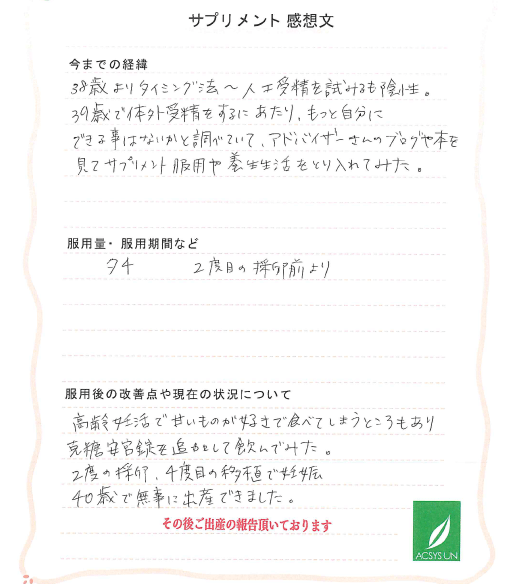 サプリメント 感想文
今までの経緯
38歳よりタイミング法〜人工受精を試みるも陰性。
39歳で体外受精をするにあたり、もっと自分に
できる事はないかと調べていて、アドバイザーさんのブログや本を
見てサプリメント服用や養生生活をとり入れてみた。
服用量・服用期間など
夕4　2度目の採卵前より
服用後の改善点や現在の状況について
高齢妊活で甘いものが好きで食べてしまうところもあり
克糖安宮錠を追加して飲んでみた。
2度の採卵、4度目の移植で妊娠
40歳で無事に出産できました。
その後ご出産の報告頂いております
ACSYSUN